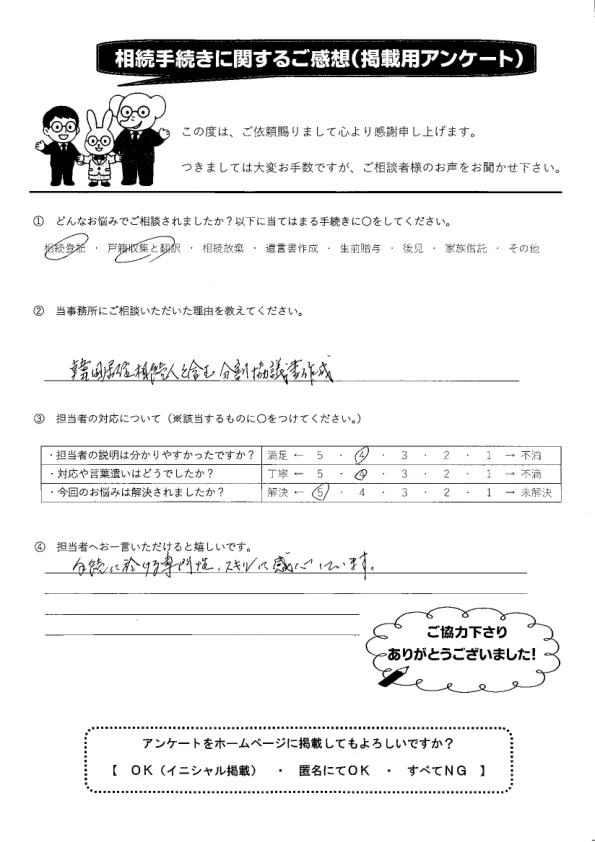 相続手続きに関するご感想(掲載用アンケート)
この度は、ご依頼賜りまして心より感謝申し上げます。
つきましては大変お手数ですが、ご相談者様のお声をお聞かせ下さい。
① どんなお悩みでご相談されましたか?以下に当てはまる手続きに〇をしてください。
相続登記 ・ 戸籍収集と翻訳 ・ 相続放棄 ・ 遺言書作成 ・ 生前贈与 ・ 後見 ・ 家族信託 ・ その他
② 当事務所にご相談いただいた理由を教えてください。
韓国居住相続人を含む分割協議書作成
③ 担当者の対応について(※該当するものに〇をつけてください。)
・担当者の説明は分かりやすかったですか? 満足 ← 5 ・ 4 ・ 3 ・ 2 ・ 1 → 不満
・対応や言葉遣いはどうでしたか? 丁寧 ← 5 ・ 4 ・ 3 ・ 2 ・ 1 → 不満
・今回のお悩みは解決されましたか? 解決 ← 5 ・ 4 ・ 3 ・ 2 ・ 1 → 未解決
④ 担当者へお一言いただけると嬉しいです。
手続に於ける専門性、スキルに感心しています。
ご協力下さり
ありがとうございました!
アンケートをホームページに掲載してもよろしいですか?
【 OK(イニシャル掲載) ・ 匿名にてOK ・ すべてNG 】